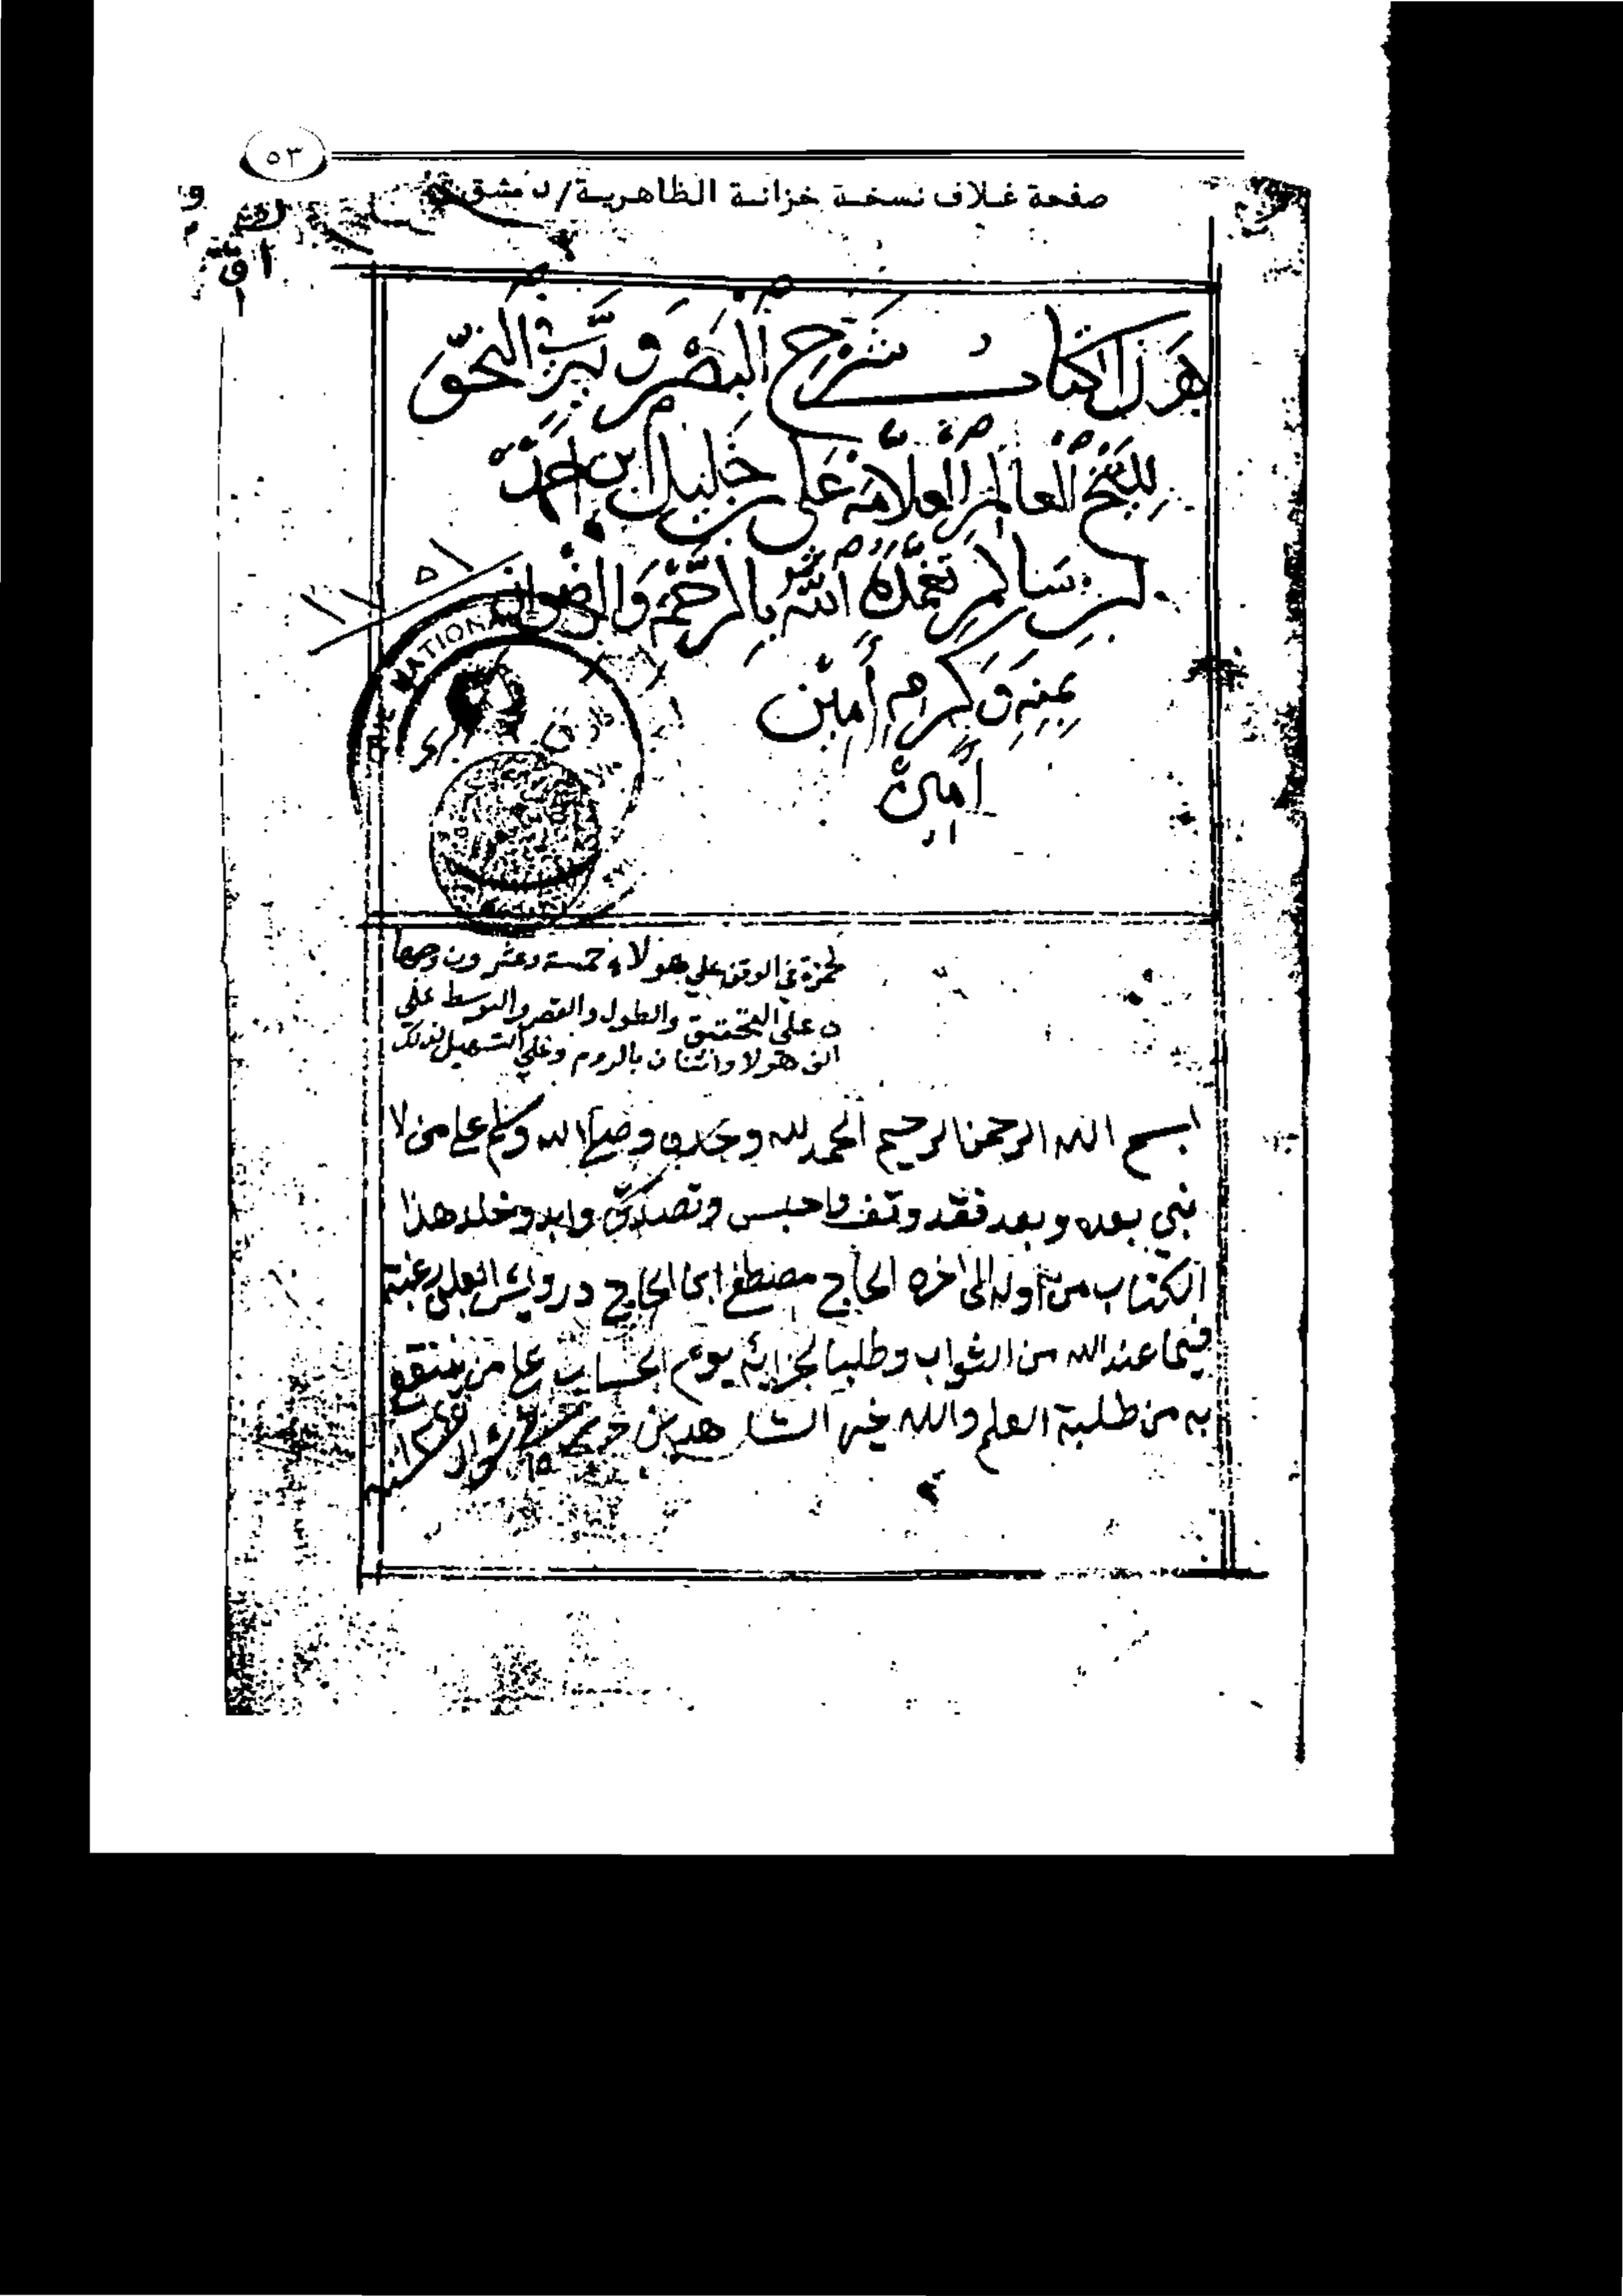 ٥٣
صفحة غلاف نسخة خزانة الظاهرية/دمشق
هذا كتاب شرح البصروية في النحو
للشيخ العالم العلامة علي بن خليل ابن احمد
بن سالم تغمده الله بالرحمة والرضوان
بمنه وكرمه امين
امين
NATIONAL
لحمزة في الوقف علي هولاء خمسة وعشرون وجها
علي التحقيق والطول والقصر والتوسط علي
الف هولا واثنان بالروم وعلي التسهيل لذلك
بسم الله الرحمن الرحيم الحمد لله وحده وصلى الله وسلم على من لا
نبي بعده وبعد فقد وقف واحبس وتصدق وابد وخلد هذا
الكتاب من اوله الى اخره الحاج مصطفى ابن الحاج درويش العلبي رغبة
فيما عند الله من الثواب وطلبا لجزائه يوم الحساب على من ينتفع
به من طلبة العلم والله خير الشاهدين شوال